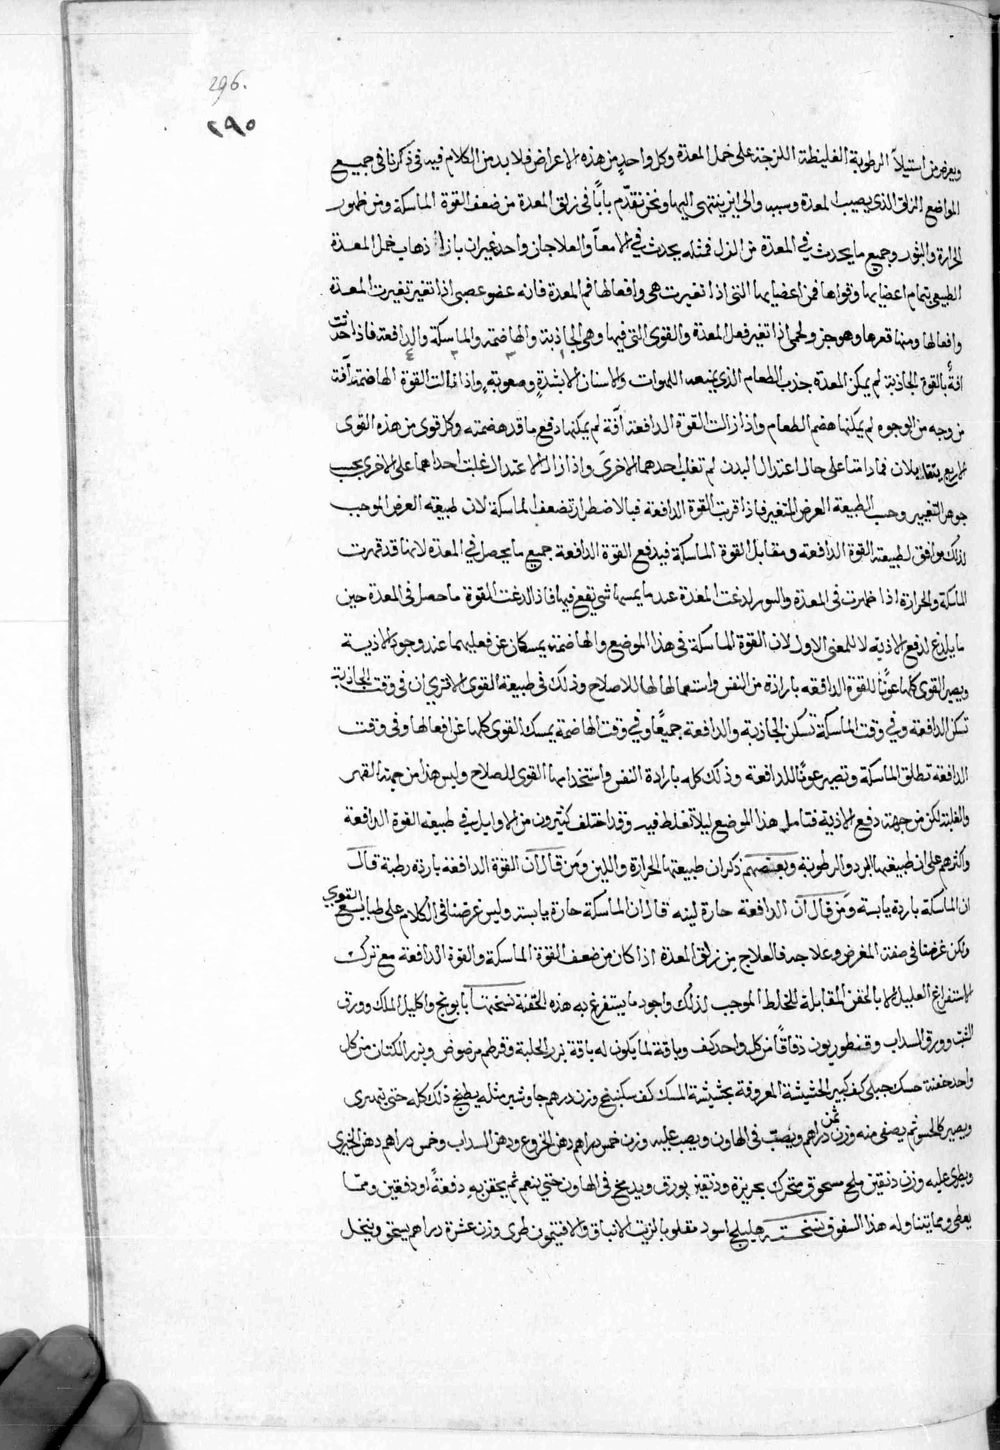 296.
٢٩٥
ويعرض من استيلآ الرطوبة الغليظة اللزجة على خمل المعدة وكل واحدٍ من هذه الاعراض فلا بد من الكلام فيه في ذكرنا في جميع
المواضع الزلق الذي يصيب المعدة وسببه والى اين ينتهى اليها ونحن نقدّم باباً في زلق المعدة من ضعف القوة الماسكة ومن ظهور
الحرارة والبثور وجميع ما يحدث في المعدة من الزلق فمثله يحدث في الامعآ والعلاجان واحد غير ان بازآ ذهاب خمل المعدة
الطبيعى بتمام اعضايها وقواها فمن اعضايها التى اذا تغيرت هى وافعالها فم المعدة فانه عضو عصبى اذا تغير تغيرت المعدة
وافعالها ومنها قعرها وهو جزو لحمى اذا تغير فعل المعدة والقوى التى فيها وهى الجاذبة والهاضمة والماسكة والدافعة فاذا حدثت
افةٌ بالقوة الجاذبة لم يمكن المعدة جذب الطعام الذي يمنعه اللهوات والاسنان الا بشدةٍ وصعوبةٍ واذا نالت القوة الهاضمة آفة
من وجه من الوجوه لم يمكنها هضم الطعام واذا زالت القوة الدافعة آفة لم يمكنها دفع ما قد هضمته وكل قوى من هذه القوى
الاربع يتقابلان فما دامتا على حال اعتدال البدن لم تغلب احدهما الاخرىَ واذا زال الاعتدال غلبت احداهما على الاخرى بحسب
جوهر التغيير وحسب الطبيعة العرض المتغير فاذا قربت القوة الدافعة فبالاضطرار تضعف الماسكة لان طبيعة العرض الموجب
لذلك يوافق لطبيعة القوة الدافعة ومقابل القوة الماسكة فيدفع القوة الدافعة جميع ما يحصل في المعدة لانها قد قهرت
الماسكة والحرارة اذا ظهرت في المعدة والبثور لدغت المعدة عند ما يمسها شي يقع فيها فاذا لدغت القوة ما حصل في المعدة حين
ما يلدغ لدفع الاذية لا للمعنى الاول لان القوة الماسكة في هذا الموضع والهاضمة يمسكان عن فعليهما عند وجود الاذية
ويصير القوى كلها عونًا للقوة الدافعه بارادة من النفس واستعمالها لها للاصلاح وذلك في طبيعة القوى الا ترى ان في وقت الجاذبة
تسكن الدافعة وفي وقت الماسكة تسكن الجاذبة والدافعة جميعًا وفي وقت الهاضمة يمسك القوى كلها عن افعالها وفى وقت
الدافعة تطلق الماسكة وتصير عونًا للدافعة وذلك كله بارادة النفس واستخدامها القوى للصلاح وليس هذا من جهة القهر
والغلبة لكن من جهة دفع الاذية فتامل هذا الموضع ليلا تغلط فيه وقد اختلف كثيرون من الاوايل في طبيعه القوة الدافعة
واكثرهم على ان طبيعتها البرد والرطوبة وبعضهم ذكر ان طبيعتها الحرارة واللين ومَن قال آن القوة الدافعة باردة رطبة قال
ان الماسكة باردة يابسة ومَن قال آن الدافعة حارة لينه قال ان الماسكة حارة يابسة وليس غرضنا في الكلام على طبايع القوي
ولكن غرضنا في صفة المغرض وعلاجه فالعلاج مِن زلق المعدة اذا كان من ضعف القوة الماسكة والقوة الدافعة مع ترك
الاستفراغ العليل الا بالحقن المقابلة للخلط الموجب لذلك واجود ما يستفرغ به هذه الحقنة نسختها بابونج واكليل الملك وورق
الشبت وورق السداب وقنطوريون دقاقًا من كل واحد كف وباقة لما يكون له باقة بزر الحلبة وقرطم مرضوض وبزر الكتان من كل
واحد حفنة حسك جبلى كف كبير الحشيشة المعروفة بحشيشة المسك كف سكبنج وزن درهم جاوشير مثله يطبخ ذلك كله حتى يتهرى
ويصير كالحسو ثم يصفى منه وزن ثمن دراهم ويصَبّ في الهاون ويصب عليه وزن خمس دراهم دهن الخروع ودهن السداب وخمس دراهم دهن الخيري
ويطرح عليه وزن دنقين ملح مسحوق متحرك بحريرة ودنقين بورق ويدبخ في الهاون حتى ينعم ثم يحقن به دفعةً او دفعين ومما
يعطى ومما يتناوله هذا السفوف نسخته هليلج اسود مقلو بالزيت الانباق والافتيمون طرى وزن عشرة دراهم يسحق وينخل